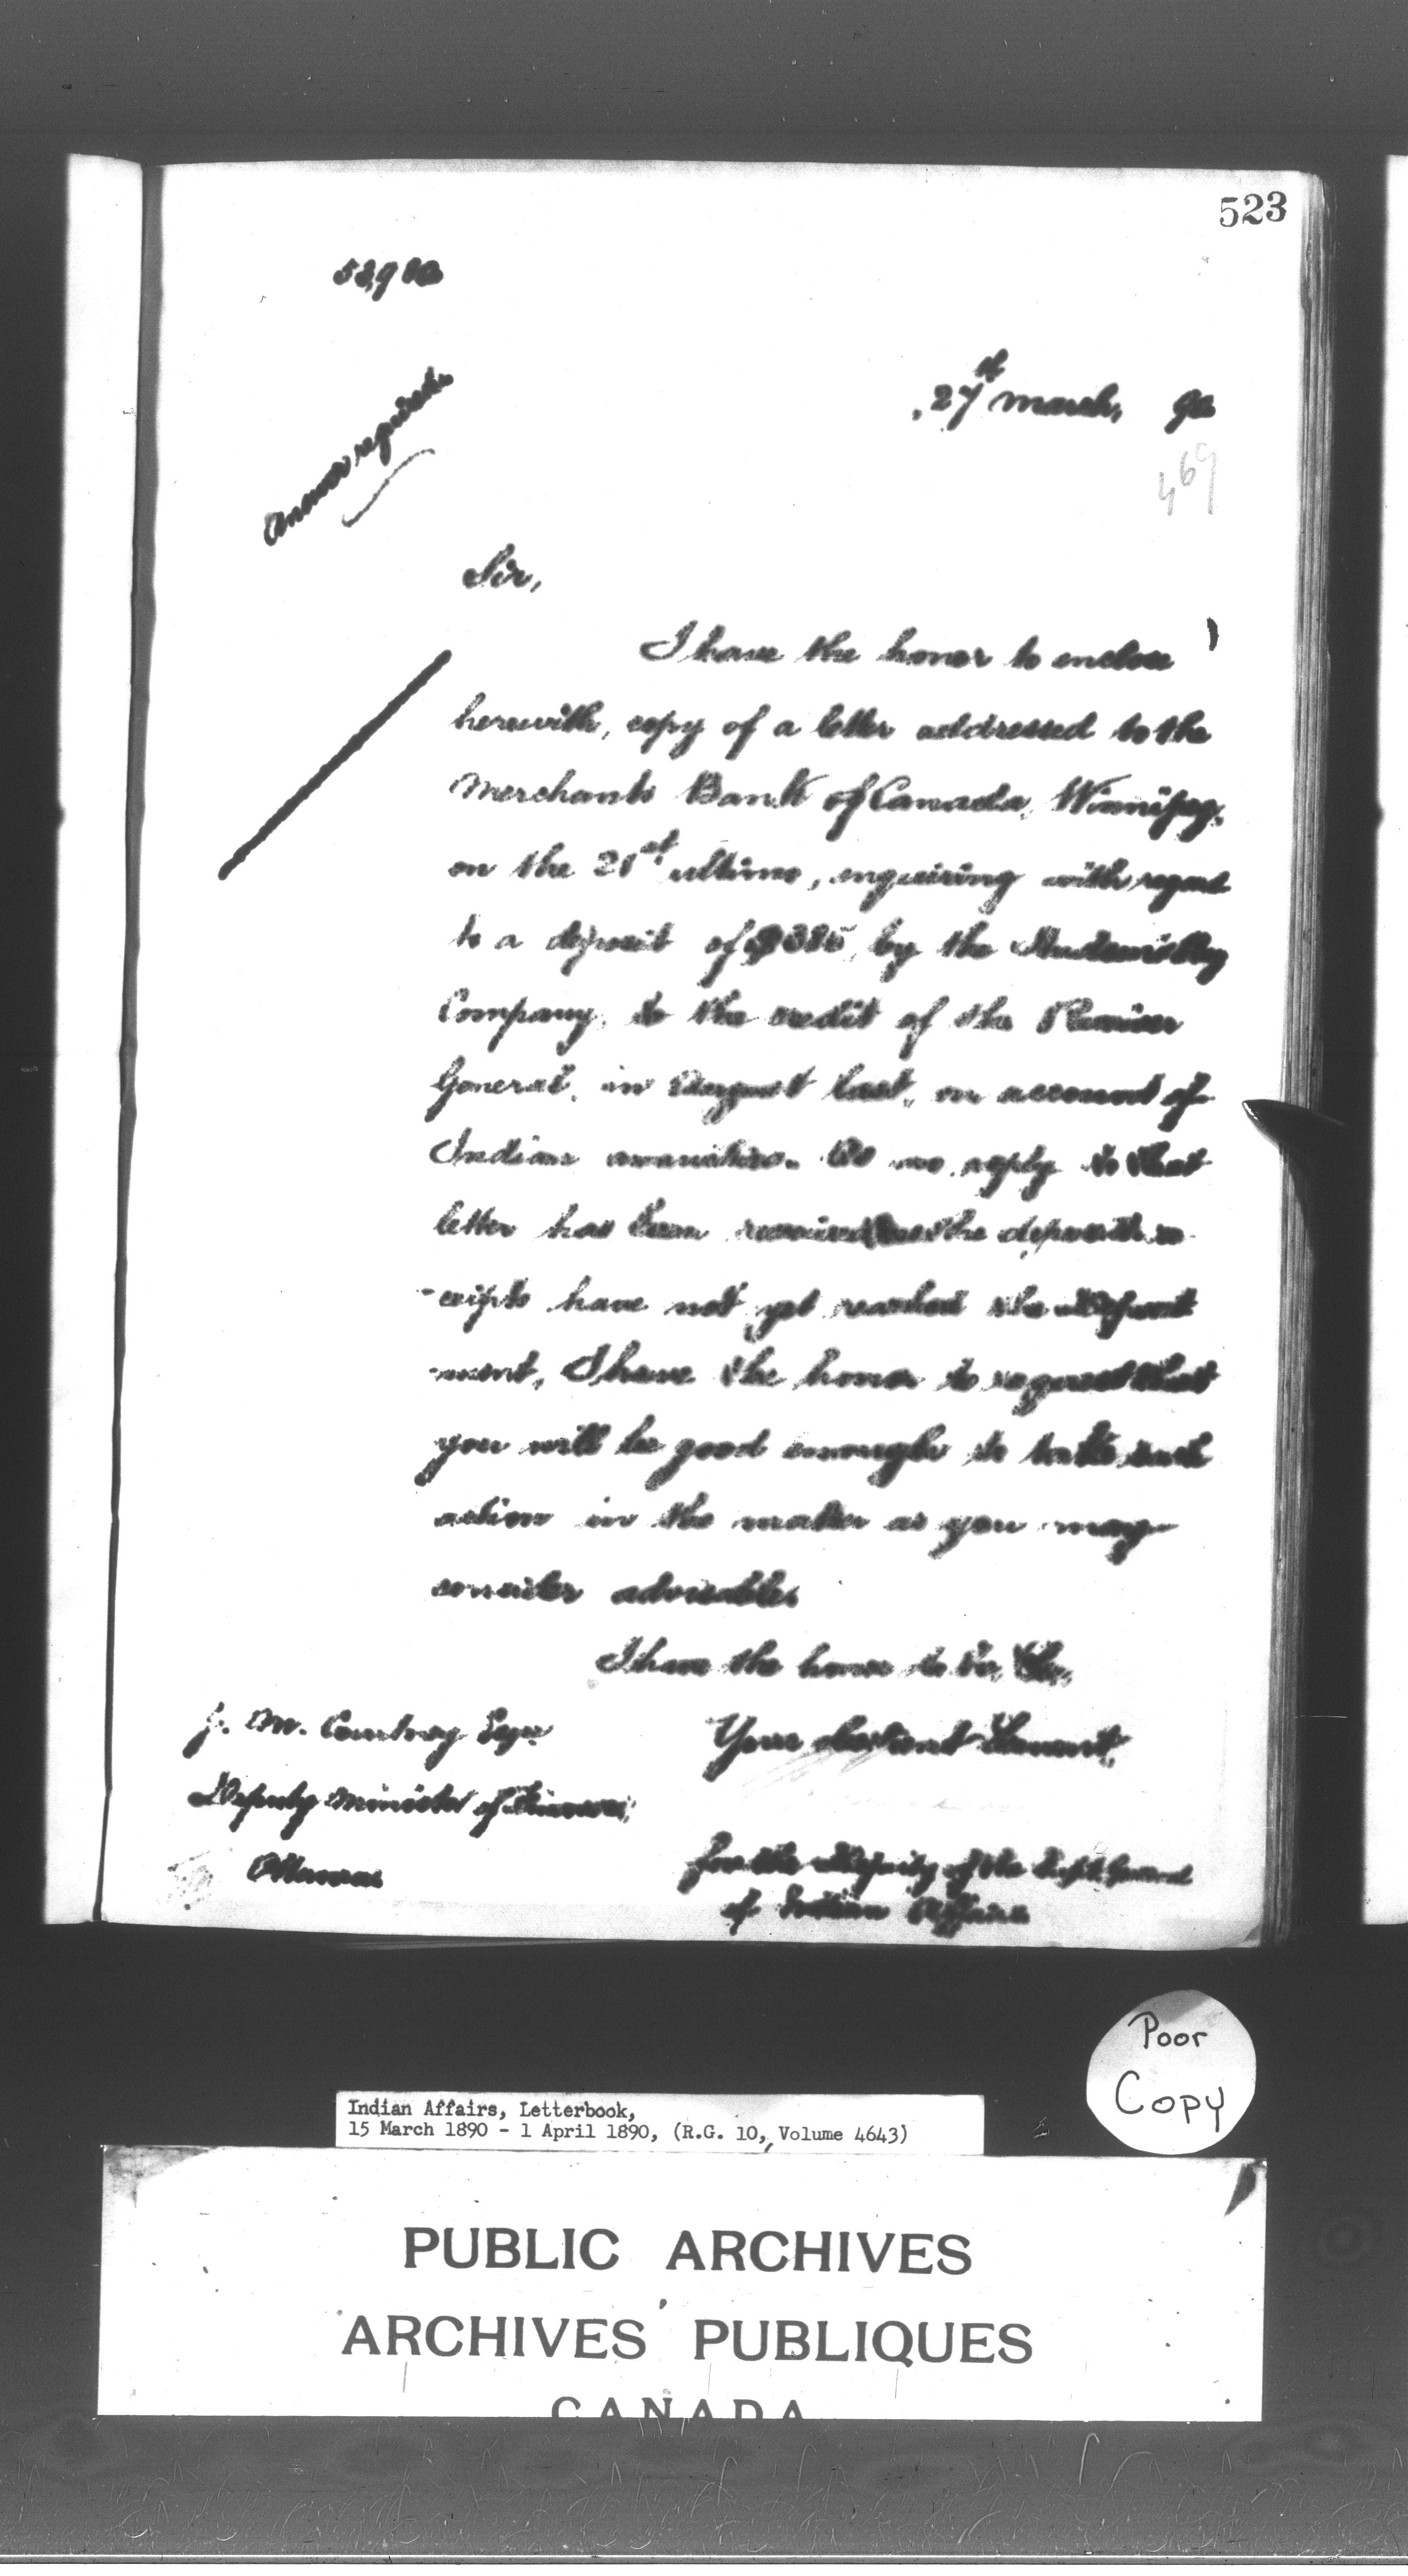 523
27th March, 90
469
Answer required
Sir,
I have the honor to enclose
herewith, copy of a letter addressed to the
Merchants Bank of Canada, Winnipeg,
on the 21st ultimo, enquiring with regard
to a deposit of $385, by the Hudson's Bay
Company, to the credit of the Receiver
General, in August last, on account of
Indian annuities. As no reply to that
letter has been received, as the deposit re-
-ceipts have not yet reached the Depart
-ment, I have the honor to request that
you will be good enough to take such
action in the matter as you may
consider advisable.
I have the honor to be, Sir,
Your obedient Servant,
J. M. Courtney Esqre
Deputy Minister of Finance,
Ottawa
for the Deputy of the Supt. General
of Indian Affairs
Poor
Copy
Indian Affairs, Letterbook,
15 March 1890 - 1 April 1890, (R.G. 10, Volume 4643)
PUBLIC ARCHIVES
ARCHIVES PUBLIQUES
CANADA